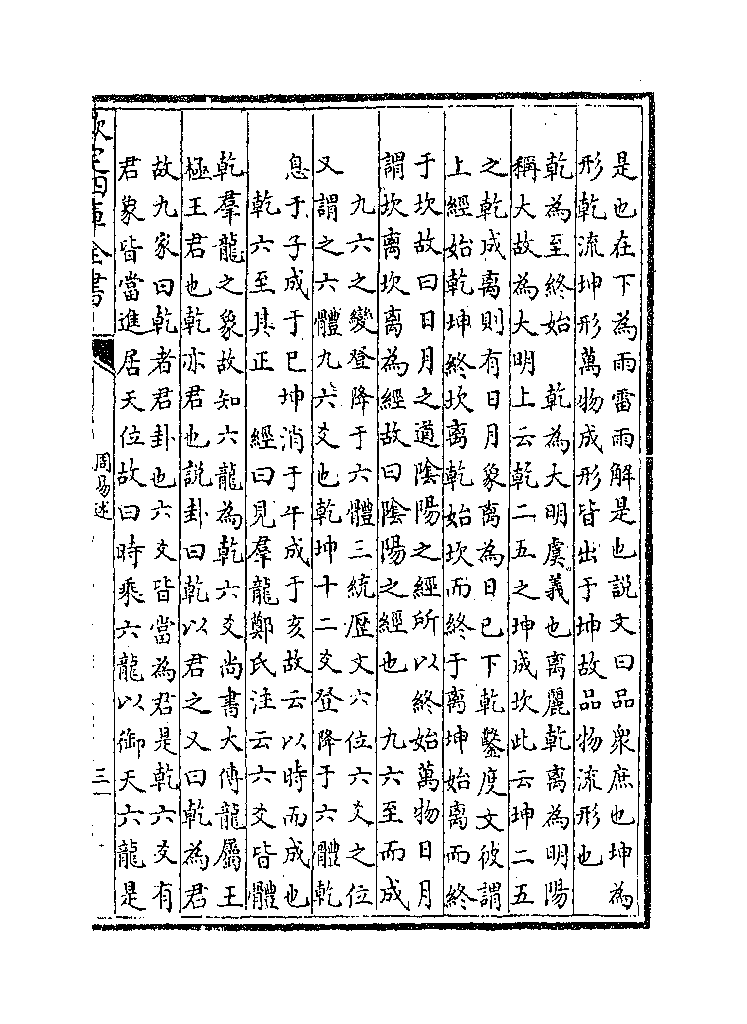 是也在下為雨雷雨解是也説文曰品衆庶也坤為
形乾流坤形萬物成形皆出于坤故品物流形也
乾為至終始　乾為大明虞義也离麗乾离為明陽
稱大故為大明上云乾二五之坤成坎此云坤二五
之乾成离則有日月象离為日已下乾鑿度文彼謂
上經始乾坤終坎离乾始坎而終于离坤始离而終
于坎故曰日月之道隂陽之經所以終始萬物日月
謂坎离坎离為經故曰隂陽之經也　九六至而成
九六之變登降于六體三統歴文六位六爻之位
又謂之六體九六爻也乾坤十二爻登降于六體乾
息于子成于巳坤消于午成于亥故云以時而成也
乾六至其正　經曰見羣龍鄭氏注云六爻皆體
乾羣龍之象故知六龍為乾六爻尚書大傳龍屬王
極王君也乾亦君也説卦曰乾以君之又曰乾為君
故九家曰乾者君卦也六爻皆當為君是乾六爻有
君象皆當進居天位故曰時乘六龍以御天六龍是
欽定四庫全書
周易述
三一